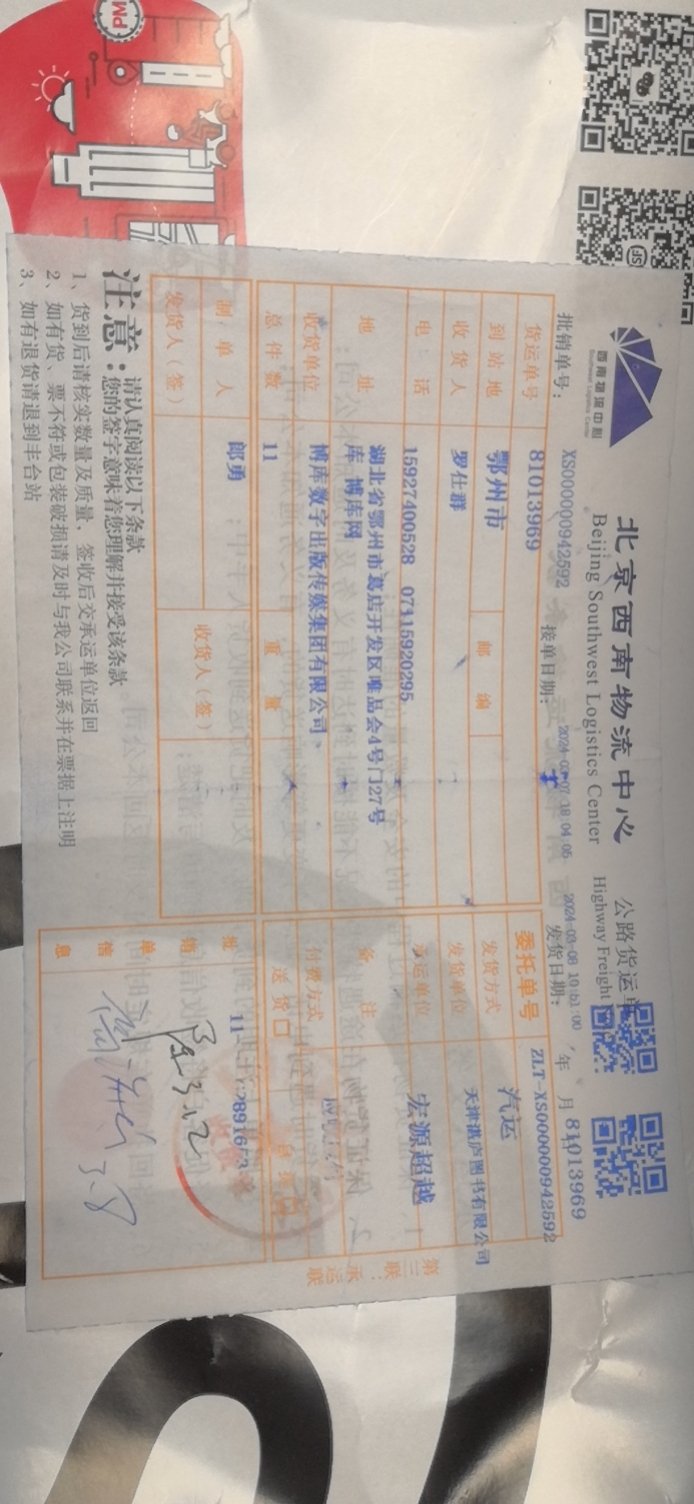 PM
西南物流中心
Southwest Logistics Center
北京西南物流中心
Beijing Southwest Logistics Center
公路货运单
Highway Freight
81013969
批销单号: XS000000942592 接单日期: 2024-03-07 18:04:05 发货日期: 2024-03-08 10:51:00 年 月
货运单号 81013969 委托单号 ZLT-XS000000942592
到站地 鄂州市 邮编 发货方式 汽运
收货人 罗仕群 发货单位 天津湛庐图书有限公司
电话 15927400528 07115920295 承运单位 宏源超越
地址 湖北省鄂州市葛店开发区唯品会4号门27号
库 博库网 备注
收货单位 博库数字出版传媒集团有限公司 付费方式
总件数 11 重量 送货口
制单人 郎勇 收货人(签)
发货人(签)
批销单信息
第三联:承运联
注意: 请认真阅读以下条款
您的签字意味着您理解并接受该条款
1、货到后请核实数量及质量, 签收后交承运单位返回
2、如有货、票不符或包装破损请及时与我公司联系并在票据上注明
3、如有退货请退到丰台站